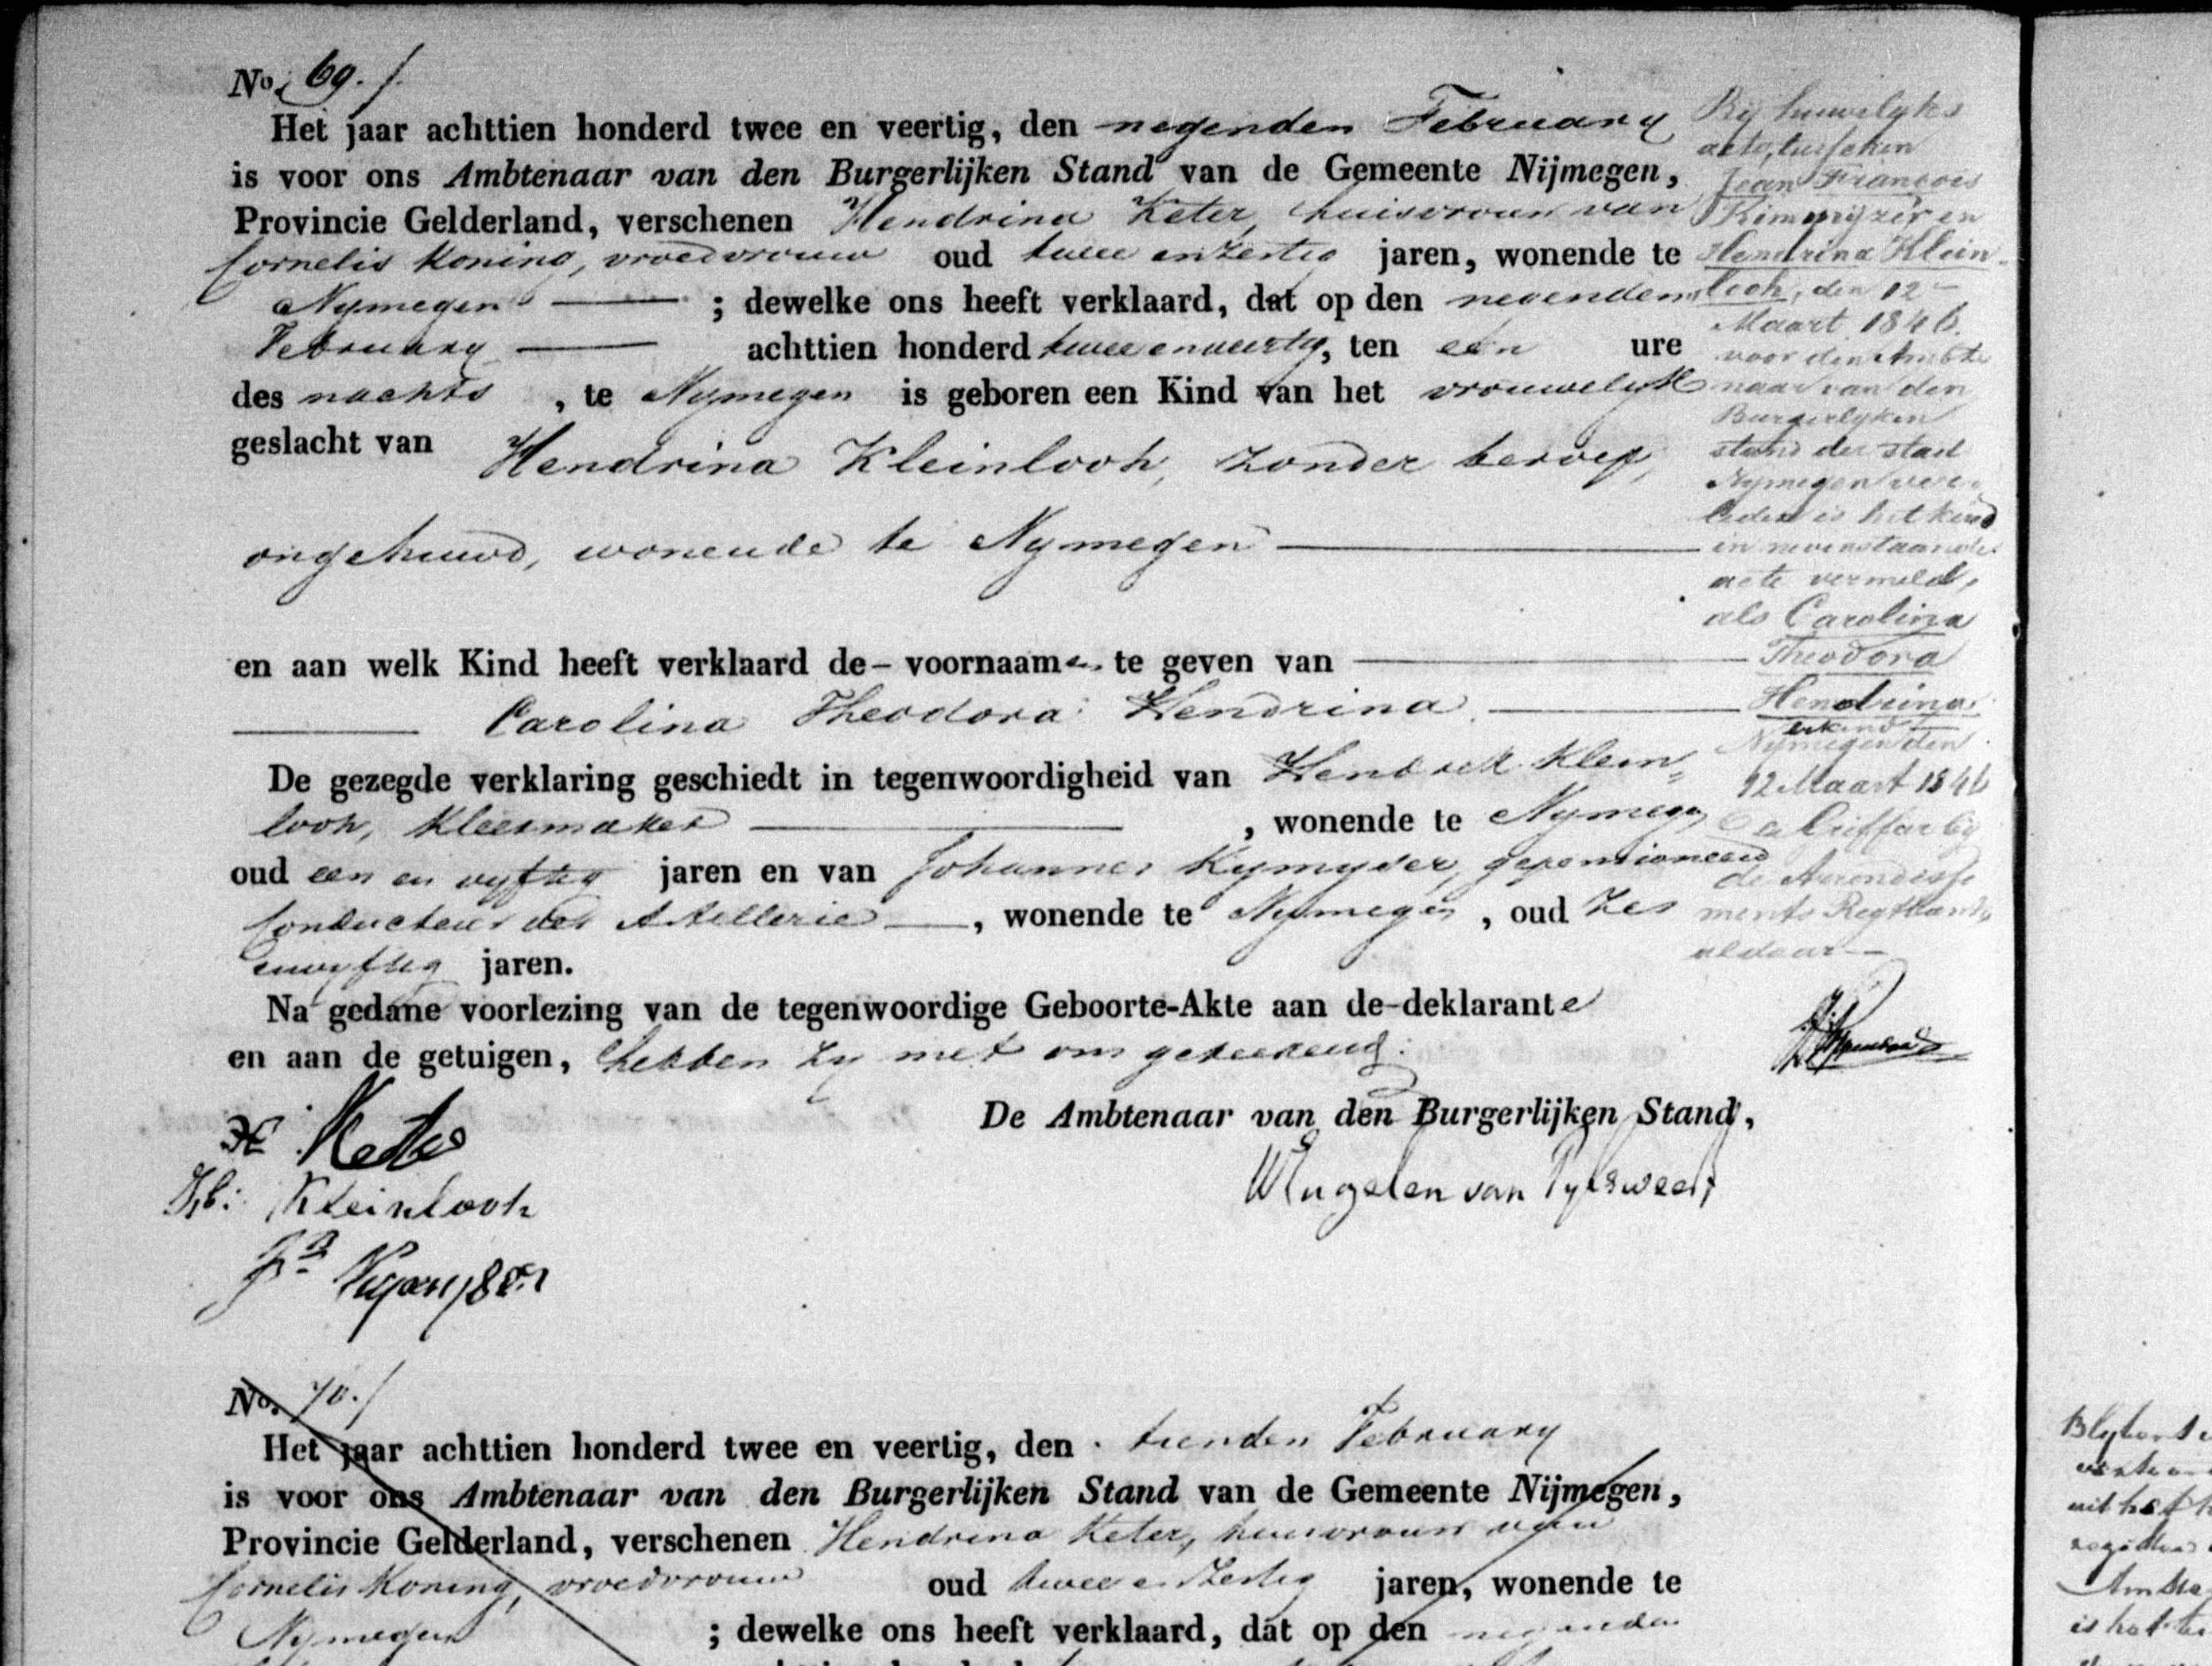 No. 69.
Het jaar achttien honderd twee en veertig, den negenden February
is voor ons Ambtenaar van den Burgerlijken Stand van de Gemeente Nijmegen,
Provincie Gelderland, verschenen Hendrina Keter, huisvrouw van
Cornelis Koning, vroedvrouw oud twee en zestig jaren, wonende te
Nymegen ; dewelke ons heeft verklaard, dat op den negenden
February achttien honderd twee en veertig, ten een ure
des nachts , te Nymegen is geboren een Kind van het vrouwelyk
geslacht van Hendrina Kleinlooh, zonder beroep,
ongehuwd, wonende te Nymegen
en aan welk Kind heeft verklaard de voornaam te geven van
Carolina Theodora Hendrina
De gezegde verklaring geschiedt in tegenwoordigheid van Hendrik Klein
looh, Kleermaker , wonende te Nymegen
oud een en vyftig jaren en van Johannes Kymyser, gepensioneerd
Conducteur der Artillerie , wonende te Nymegen , oud zes
envyftig jaren.
Na gedane voorlezing van de tegenwoordige Geboorte-Akte aan de deklarante
en aan de getuigen, hebben zy met ons geteekend.
De Ambtenaar van den Burgerlijken Stand,
H Keter
Kleinlooh
WEngelen van Pylsweert
By huwelyks
acte, tusschen
Jean François
en
Hendrina Klein
looh, den 12
Maart 1846
voor den Ambte
naar van den
Burgerlyken
stand der stad
Nymegen ver
leden is het kind
in nevenstaande
acte vermeld,
als Carolina
Theodora
Hendrina
erkend
Nymegen den
12 Maart 1846
De Griffier by
de Arrondisse
ments Regtbank
aldaar
No. 70.
Het jaar achttien honderd twee en veertig, den tienden February
is voor ons Ambtenaar van den Burgerlijken Stand van de Gemeente Nijmegen,
Provincie Gelderland, verschenen Hendrina Keter, huisvrouw van
Cornelis Koning, vroedvrouw oud twee en zestig jaren, wonende te
Nymegen ; dewelke ons heeft verklaard, dat op den negenden